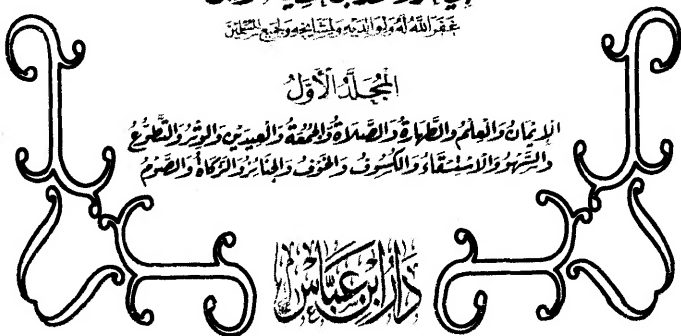 غَفَرَ اللَّهُ لَهُ وَلِوَالِدَيْهِ وَلِمَشَايِخِهِ وَلِجَمِيعِ الْمُسْلِمِيْنَ
الْمُجَلَّدُ الْأَوَّلُ
الْإِيْمَانُ وَالْعِلْمُ وَالطَّهَارَةُ وَالصَّلَاةُ وَالْجُمُعَةُ وَالْعِيدَيْنِ وَالْوِتْرُ وَالتَّطَوُّعُ
وَالسَّهْوُ وَالِاسْتِسْقَاءُ وَالْكُسُوفُ وَالْخَوْفُ وَالْجَنَائِزُ وَالزَّكَاةُ وَالصَّوْمُ
دَارُ ابْنِ عَبَّاسٍ